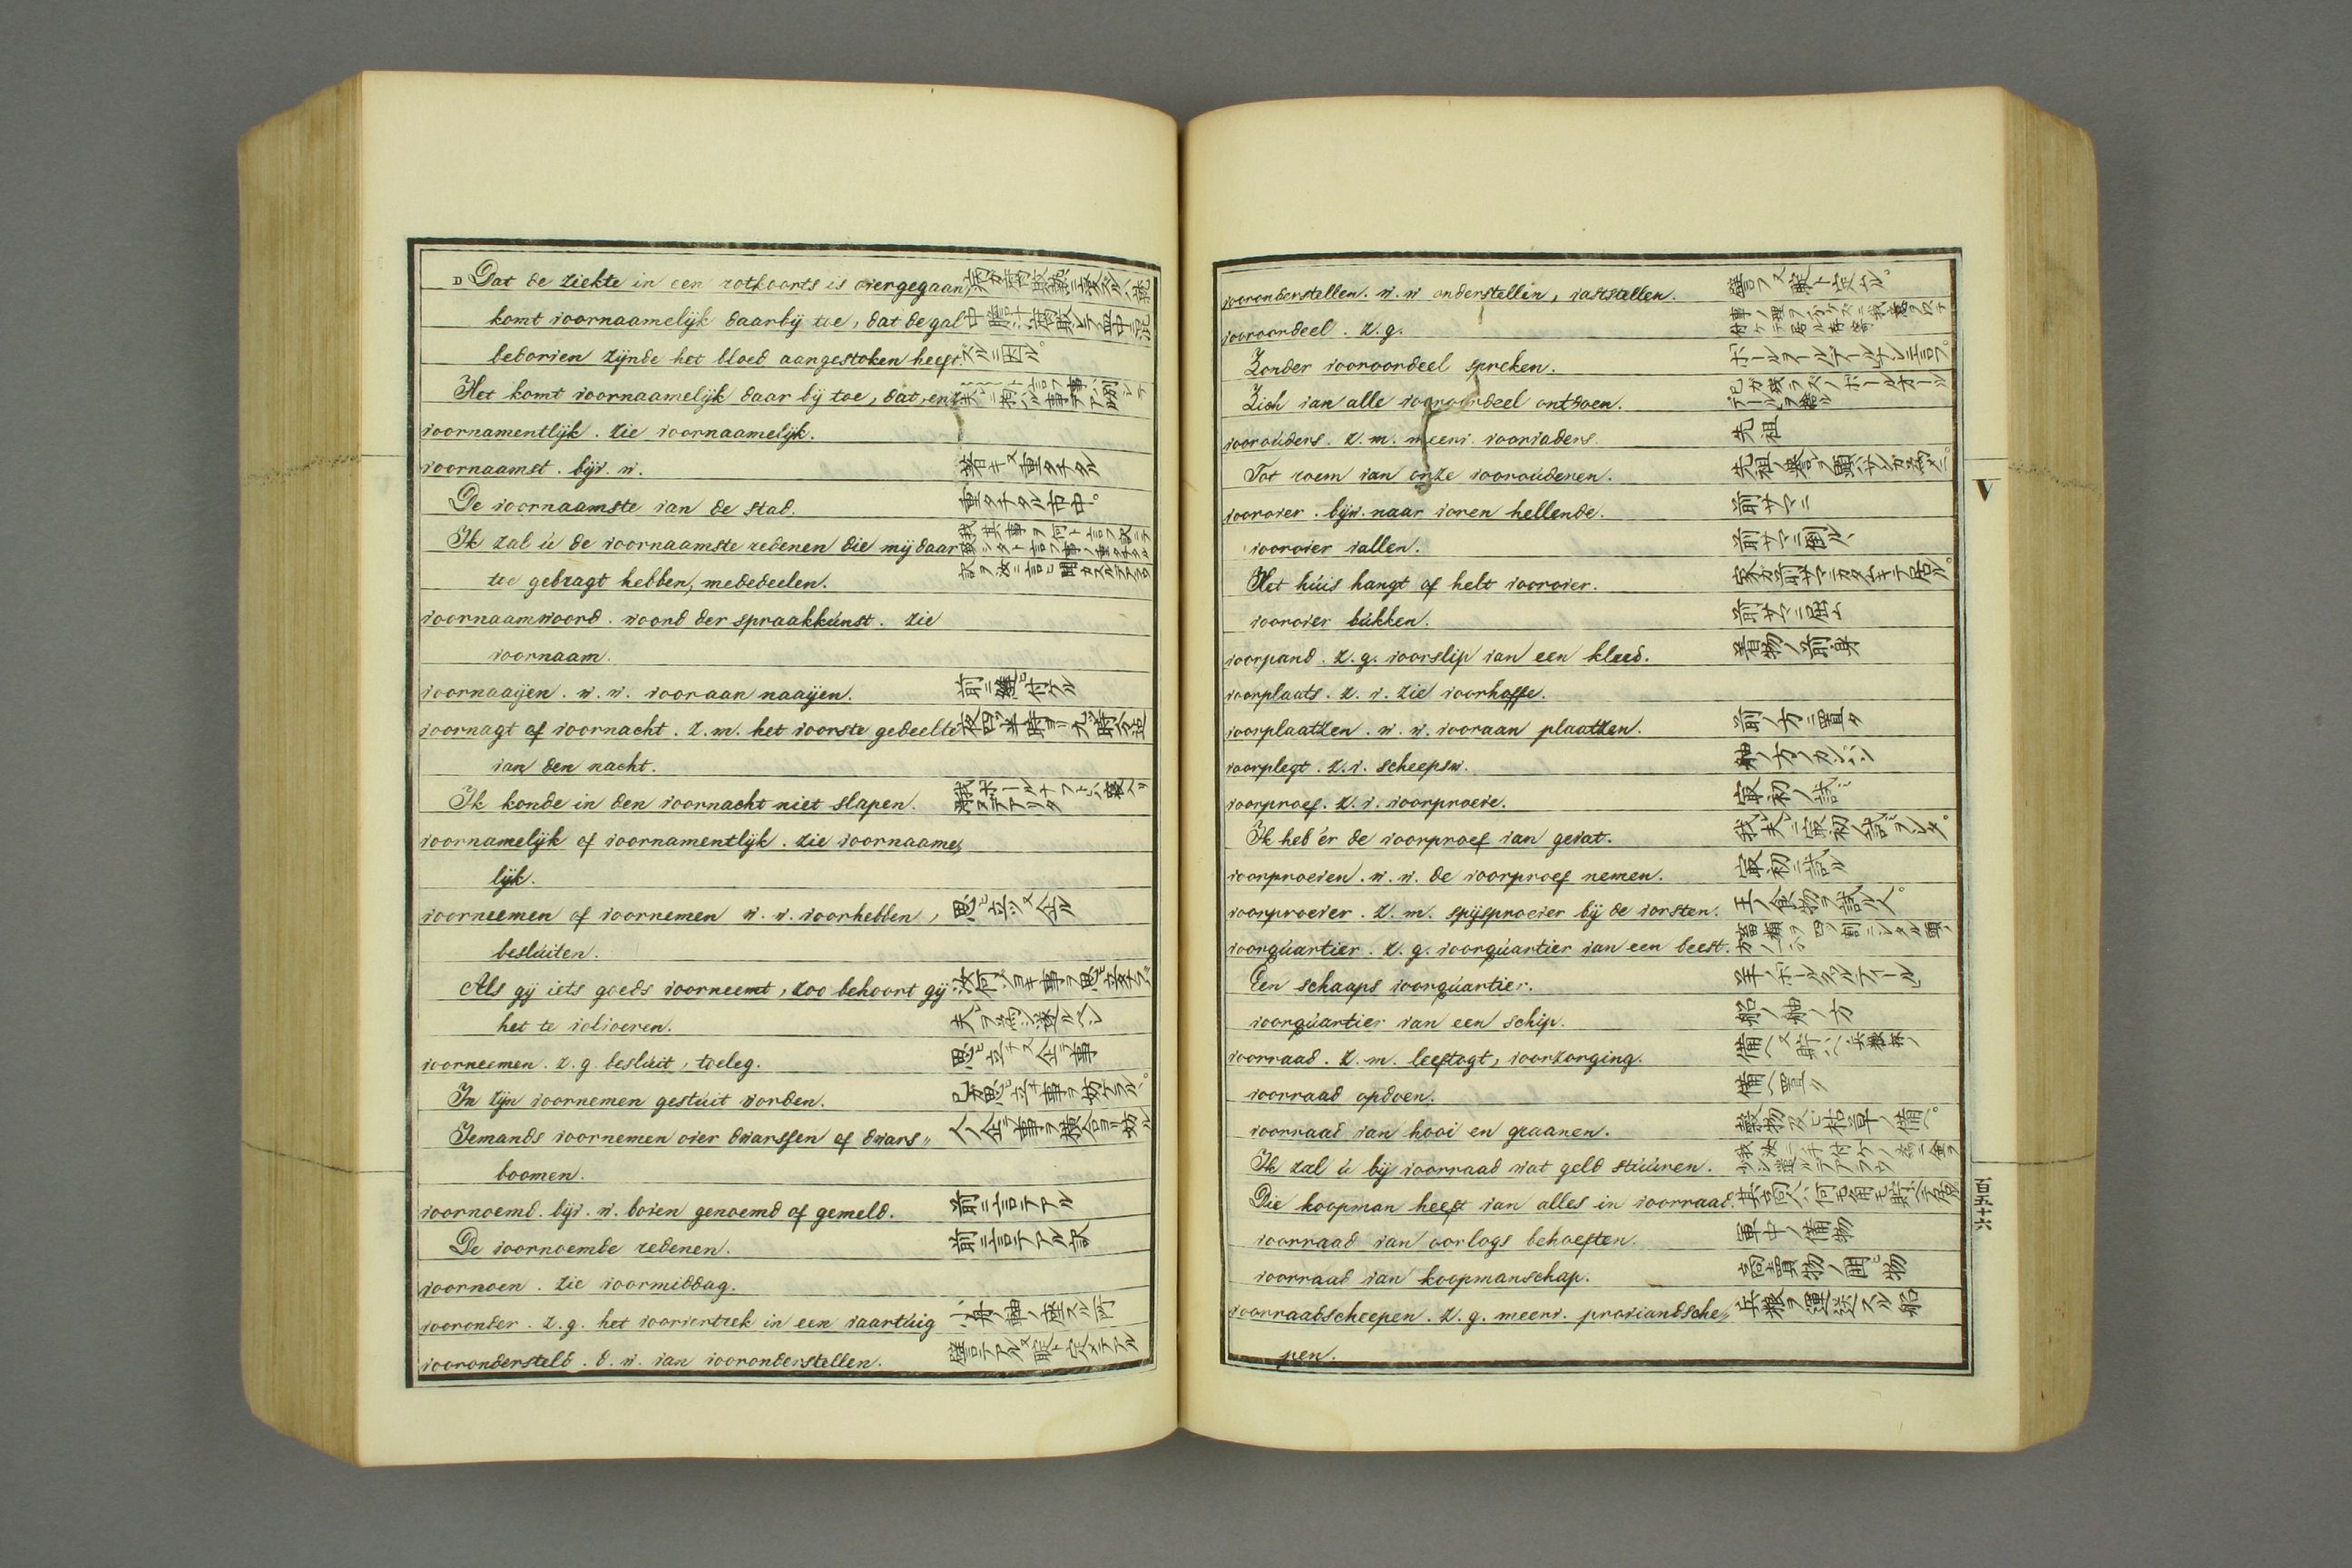 Dat de ziekte in een rotkoorts is overgegaan,
komt voornaamelijk daarbij toe, dat de gal
bedorven zijnde het bloed aangestoken heeft. ズルニ因ル。
Het komt voornaamelijk daar bij toe, dat, enz
voornamentlijk. zie voornaamelijk.
voornaamst. bijv. w. 著キ又重タチタル
De voornaamste van de stad. 重タチタル市中。
Ik zal ú de voornaamste redenen die mij daar
toe gebragt hebben, mededeelen.
voornaamwoord. woord der spraakkúnst. zie
voornaam.
voornaaijen. w. w. vooraan naaijen. 前ニ縫ヒ付ケル
voornagt of voornacht. z. m. het voorste gedeelte 夜四ツ半時ヨリ九ツ時今迄
van den nacht.
Ik konde in den voornacht niet slapen.
voornamelijk of voornamentlijk. zie voornaame„
lijk.
voorneemen of voornemen w. w. voorhebben, 思ヒ立ツ又企ル
beslúiten.
Als gij iets goeds voorneemt, zoo behoort gij
het te volvoeren.
voorneemen. z. g. beslúit, toeleg. 思ヒ立チ又企ラ事
In zijn voornemen gestúit worden.
Iemands voornemen over dwarssen of dwars„
boomen.
voornoemd. bijv. w. boven genoemd of gemeld. 前ニ言テアル
De voornoemde redenen. 前ニ言テアル訳
voornoen. zie voormiddag.
vooronder. z. g. het voorvertrek in een vaartúig 小舟ノ軸ノ座スル所
voorondersteld. d. w. van vooronderstellen.
vooronderstellen. w. w onderstellen, vaststellen.
vooroordeel. z. g.
Zonder vooroordeel spreken.
Zich van alle vooroordeel ontdoen.
vooroúders. z. m. meerv. voorvaders. 先祖
Tot roem van onze vooroúderen.
voorover. bijw. naar voren hellende. 前サマニ
voorover vallen. 前サマニ倒ル
Het húis hangt of helt voorover.
voorover búkken. 前サマニ屈ム
voorpand. z. g. voorslip van een kleed. 着物ノ前身
voorplaats. z. v. zie voorhoffe.
voorplaatzen. w. w. vooraan plaatzen. 前ノ方ニ置ク
voorplegt. z. v. scheepsw.
voorproef. z. v. voorproeve. 最初ノ試ミ
Ik heb 'er de voorproef van gevat.
voorproeven. w. w. de voorproef nemen. 最初ニ試ル
voorproever. z. m. spijsproever bij de vorsten. 王ノ食物ヲ試ル人。
voorqúartier. z. g. voorqúartier van een beest.
Een schaaps voorqúartier.
voorqúartier van een schip. 船ノ軸ノ方
voorraad. z. m. leeftogt, voorzorging.
voorraad opdoen. 備ヘ置ク
voorraad van hooi en graanen. 穀物及ヒ枯草ノ備ヘ。
Ik zal ú bij voorraad wat geld stúúren.
Die koopman heeft van alles in voorraad.
voorraad van oorlogs behoeften. 軍中ノ備物
voorraad van koopmanschap. 商買物ノ囲ヒ物
voorraadscheepen. z. g. meerv. proviandsche„ 兵粮ヲ運送スル船
pen.
V
百五十六